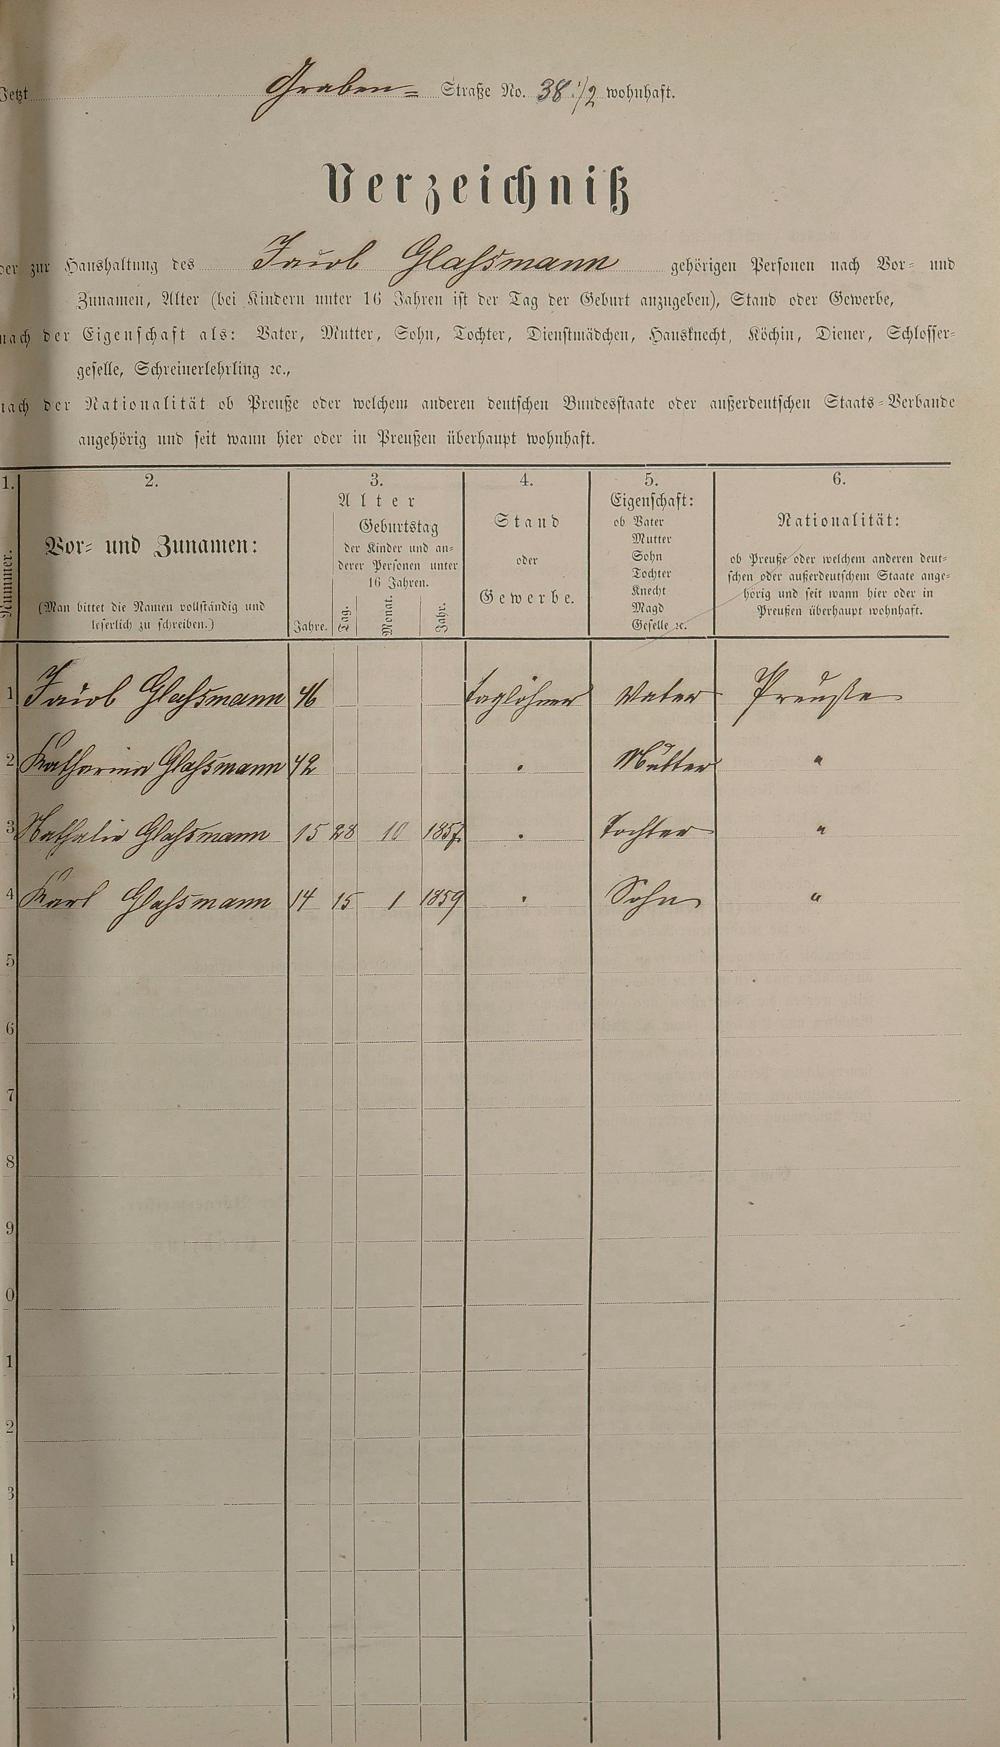 Jetzt Graben- Straße No. 38 1/2 wohnhaft.
Verzeichniß
der zur Haushaltung des Jacob Glaßmann gehörigen Personen nach Vor- und
Zunamen, Alter (bei Kindern unter 16 Jahren ist der Tag der Geburt anzugeben), Stand oder Gewerbe,
nach der Eigenschaft als: Vater, Mutter, Sohn, Tochter, Dienstmädchen, Hausknecht, Köchin, Diener, Schlosser-
geselle, Schreinerlehrling ꝛc.,
nach der Nationalität ob Preuße oder welchem anderen deutschen Bundesstaate oder außerdeutschen Staats-Verbande
angehörig und seit wann hier oder in Preußen überhaupt wohnhaft.
1. 2. 3. 4. 5. 6.
Nummer.
Vor- und Zunamen:
(Man bittet die Namen vollständig und
leserlich zu schreiben.)
Alter
Jahre.
Geburtstag
der Kinder und an-
derer Personen unter
16 Jahren.
Tag. Monat. Jahr.
Stand
oder
Gewerbe.
Eigenschaft:
ob Vater
Mutter
Sohn
Tochter
Knecht
Magd
Geselle ꝛc.
Nationalität:
ob Preuße oder welchem anderen deut-
schen oder außerdeutschem Staate ange-
hörig und seit wann hier oder in
Preußen überhaupt wohnhaft.
1 Jacob Glaßmann 46 Taglöhner Vater Preuße
2 Katharina Glaßmann 42 " Mutter "
3 Nathalie Glaßmann 15 28 10 1857 " Tochter "
4 Karl Glaßmann 14 15 1 1859 " Sohn "
5
6
7
8
9
0
1
2
3
4